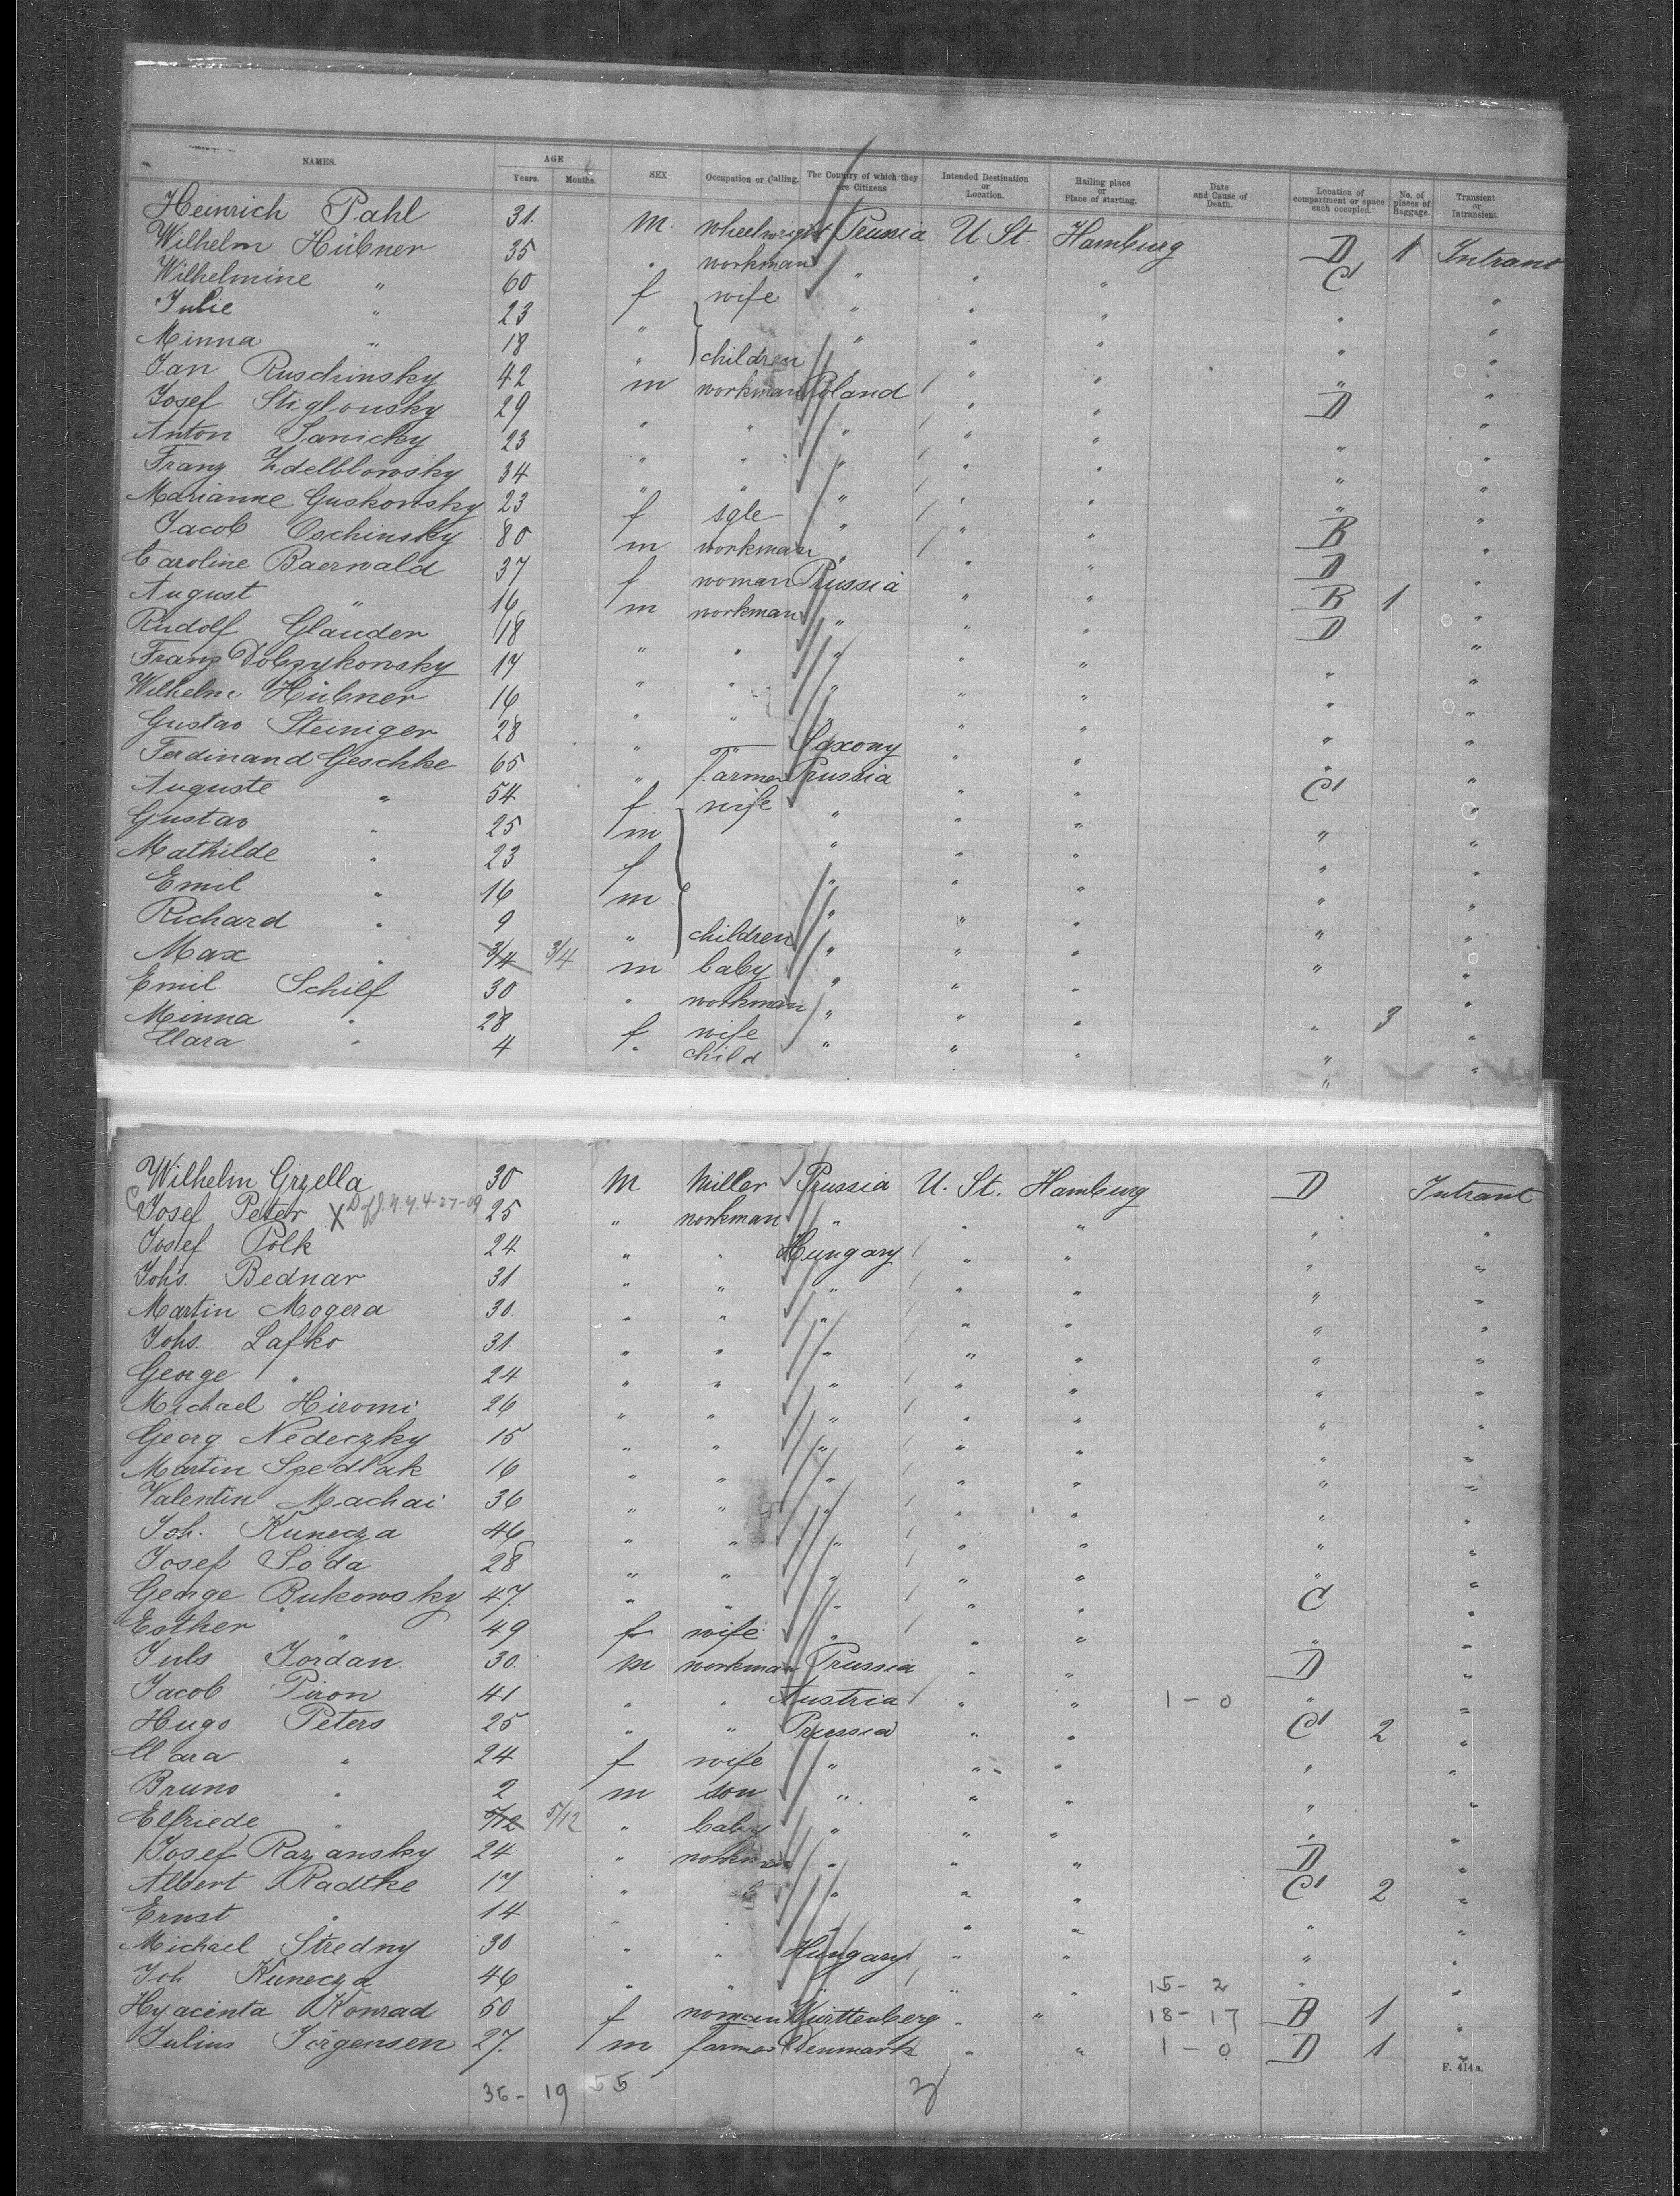 NAMES. AGE Years. Months. SEX Occupation or Calling. The Country of which they are Citizens Intended Destination or Location. Hailing place or Place of starting. Date and Cause of Death. Location of compartment or space each occupied. No. of pieces of Baggage. Transient or Intransient.
Heinrich Pahl 31. M. wheelwright Prussia U St. Hamburg D 1 Intrant
Wilhelm Hübner 35 " workman " " " C "
Wilhelmine " 60 f wife " " " " "
Julie " 23 " " " " " "
Minna " 18 " children " " " " "
Jan Ruschinsky 42 m workman Poland " " D "
Josef Stiglonsky 29 " " " " " " "
Anton Sawicky 23 " " " " " " "
Franz Zdelblowsky 34 " " " " " " "
Marianne Guskowsky 23 f sgle " " " B "
Jacob Oschinsky 80 m workman " " " D "
Caroline Baerwald 37 f woman Prussia " " B 1 "
August " 16 m workman " " " D "
Rudolf Glauden 18 " " " " " " "
Franz Dobzykowsky 17 " " " " " " "
Wilhelm Hübner 16 " " " " " " "
Gustav Steiniger 28 " " Saxony " " " "
Ferdinand Geschke 65 " Farmer Prussia " " C "
Auguste " 54 f wife " " " " "
Gustav " 25 m " " " " "
Mathilde " 23 f " " " " "
Emil " 16 m " " " " "
Richard " 9 " children " " " " "
Max " 3/4 3/4 m baby " " " " "
Emil Schilf 30 " workman " " " " 3 "
Minna " 28 f wife " " " " "
Clara " 4 " child " " " " "
Wilhelm Grzella 30 M Miller Prussia U. St. Hamburg D Intrant
C Josef Peter X 4-27-09 25 " workman " " " " "
Josef Polk 24 " " Hungary " " " "
Johs. Bednar 31 " " " " " " "
Martin Mogera 30. " " " " " " "
Johs. Lafko 31 " " " " " " "
George " 24 " " " " " " "
Michael Hiromi 26 " " " " " " "
Georg Nedeczky 15 " " " " " " "
Martin Szedlak 16 " " " " " " "
Valentin Machai 36 " " " " " " "
Joh. Kunecza 46 " " " " " " "
Josef Soda 28 " " " " " " "
George Bukowsky 47. " " " " " C "
Esther " 49 f wife " " " " "
Juls Jordan 30. M workman Prussia " " D "
Jacob Piron 41 " " Austria " " 1 - 0 " "
Hugo Peters 25 " " Prussia " " C 2 "
Clara " 24 f wife " " " " "
Bruno " 2 m son " " " " "
Elfriede " 5/12 5/12 " baby " " " " "
Josef Razansky 24 " workman " " " D "
Albert Radtke 17 " " " " " C 2 "
Ernst " 14 " " " " " " "
Michael Stredny 30 " " Hungary " " " "
Joh Kunecza 46 " " " " " 15 - 2 " "
Hyacinta Konrad 50 f woman Württenberg " " 18 - 17 B 1 "
Julius Jörgensen 27. m farmer Denmark " " 1 - 0 D 1 "
F. 414 a.
36 - 19 55